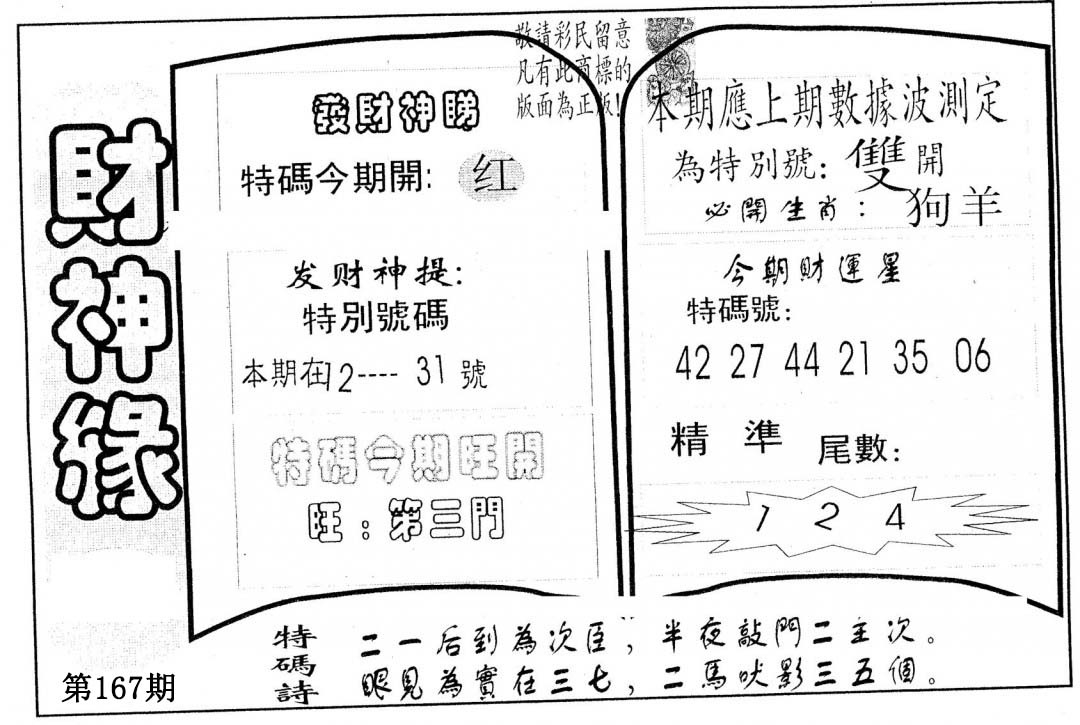 財神緣
第167期
敬請彩民留意
凡有此商標的
版面為正版!
發財神睇
特碼今期開: 红
发财神提:
特別號碼
本期在12---- 31 號
特碼今期旺開
旺:第三門
本期應上期數據波測定
為特別號: 雙開
必開生肖: 狗羊
今期財運星
特碼號:
42 27 44 21 35 06
精準 尾數:
1 2 4
特碼詩
二一后到為次臣,半夜敲門二主次。
眼見為實在三七,二馬吠影三五個。